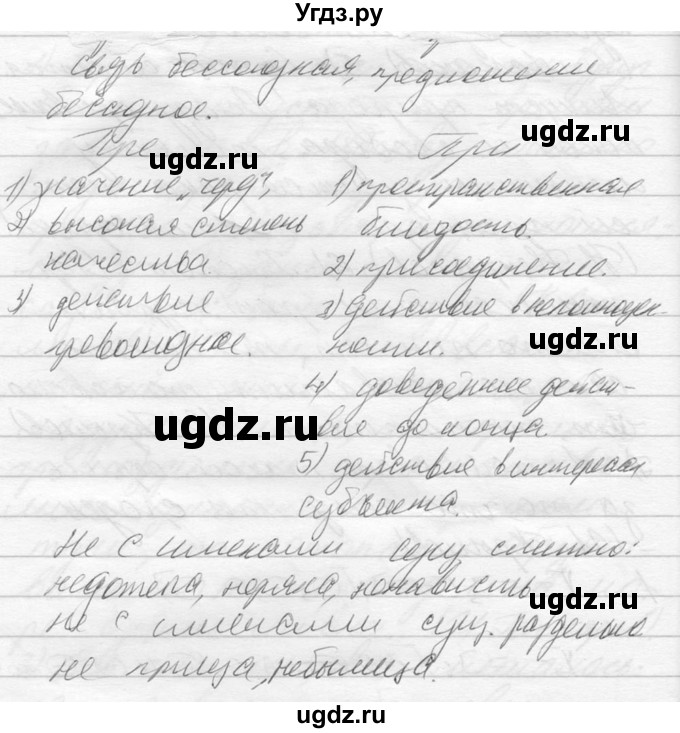 Угдз.ру
Связь бессоюзная, предложение
бессоюзное.
Пре При
1) значение „чере", 1) пространственная
2) высокая степень близость.
качества. 2) присоединение.
3) действие 3) действие в неполноцен-
превосходное. ности.
4) доведённое дейст-
вие до конца.
5) действие в интересах
субъекта.
Не с именами сущ слитно:
недотепа, неряха, ненависть
не с именами сущ. раздельно
не птица, небылица.
ugdz.ru
ugdz.ru
ugdz.ru
ugdz.ru
ugdz.ru
ugdz.ru
ugdz.ru